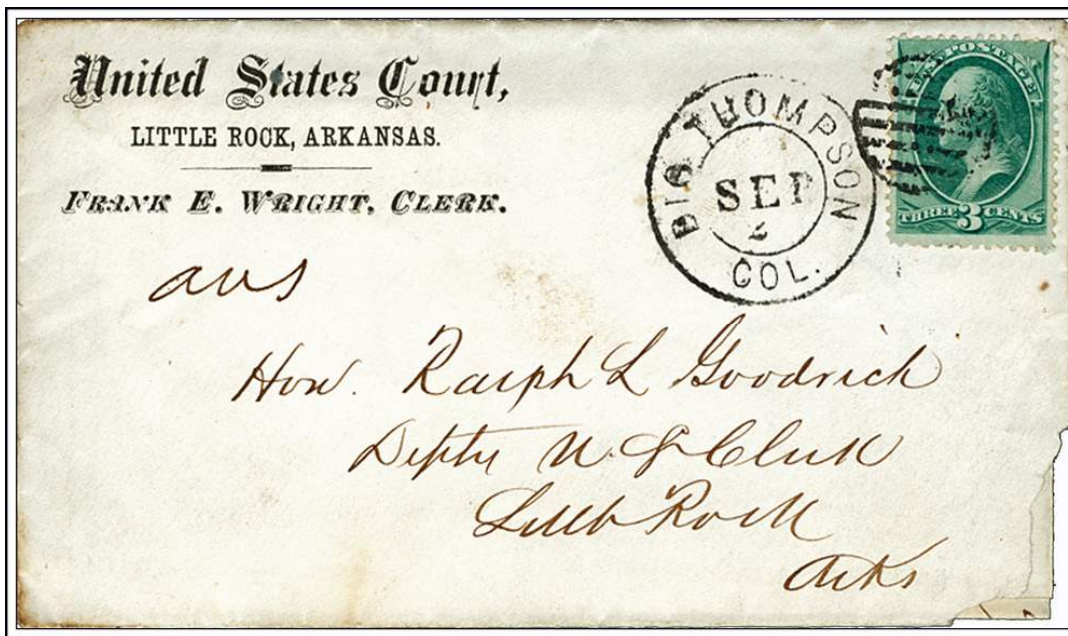 United States Court,
LITTLE ROCK, ARKANSAS.
FRANK E. WRIGHT, CLERK.
BIG THOMPSON
SEP
2
COL.
POSTAGE
THREE 3 CENTS
ans
Hon. Ralph L Goodrich
Depty U.S Clerk
Little Rock
Arks